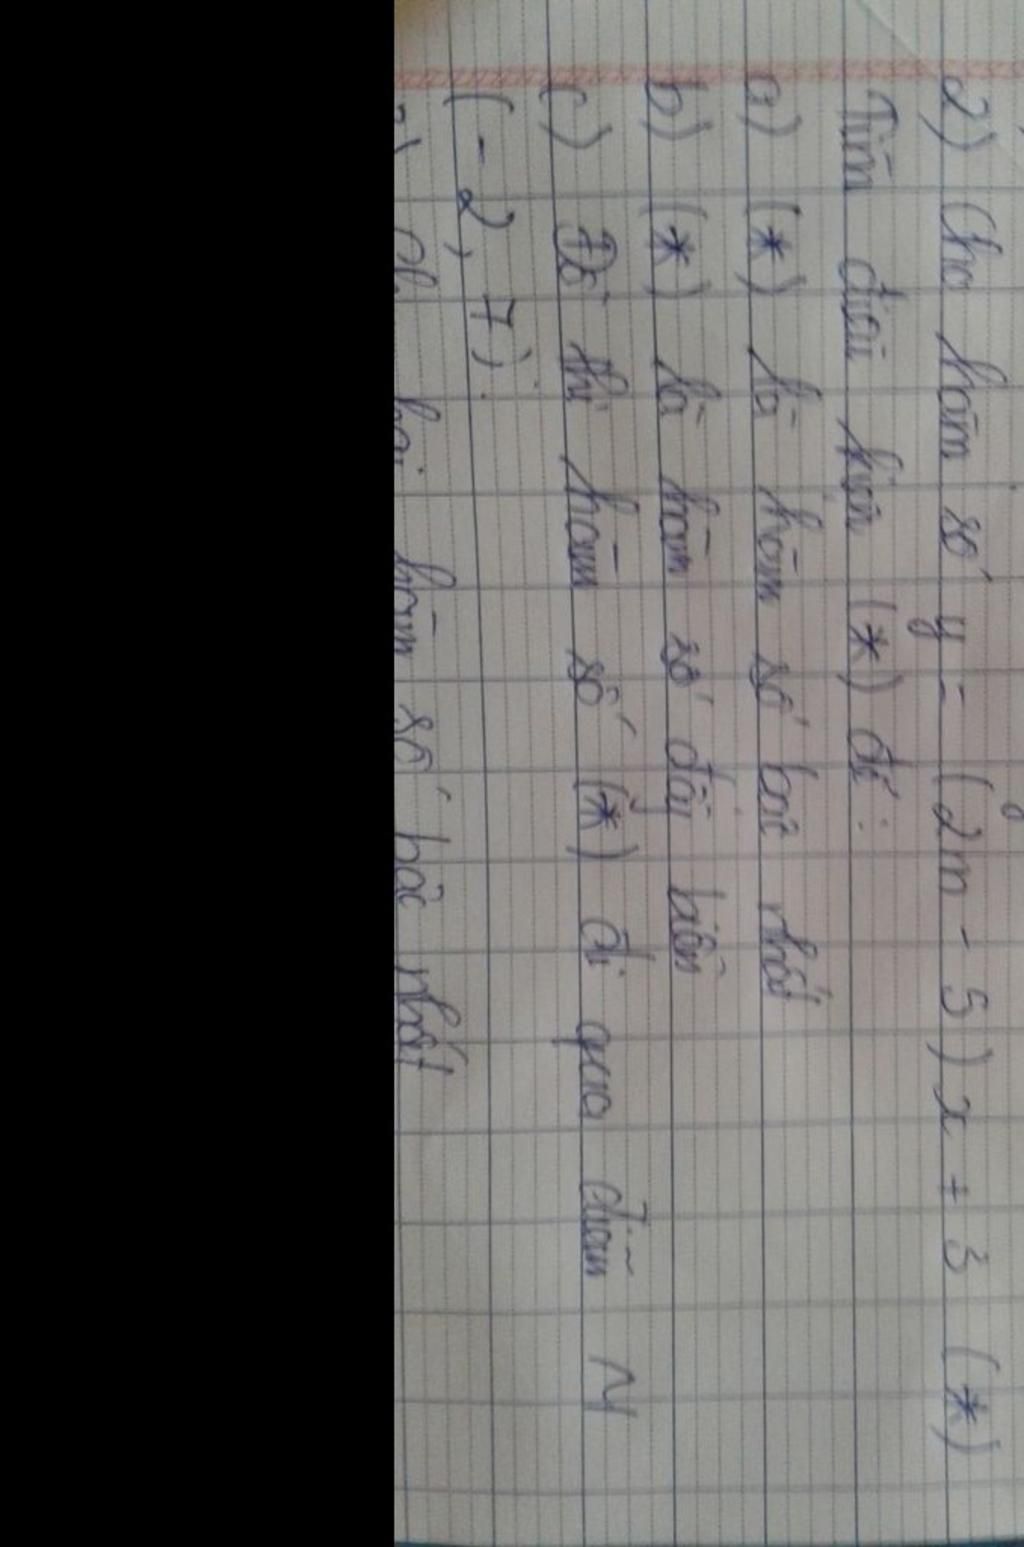 2) Cho hàm số y = (2m - 5)x + 3 (*)
Tìm điều kiện (*) để :
a) (*) là hàm số bậc nhất
b) (*) là hàm số đồng biến
c) Đồ thị hàm số (*) đi qua điểm N
(-2, 7).
hai hàm số bậc nhất